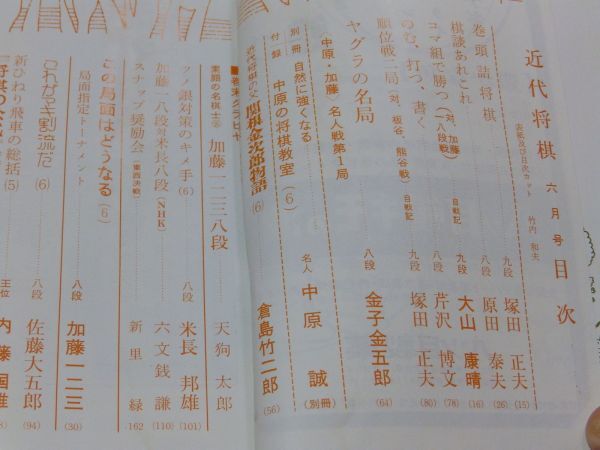 近代将棋 六月号 目次
表紙及び目次カット 竹内 和夫
巻頭詰将棋 九段 塚田 正夫 (15)
棋談あれこれ 八段 原田 泰夫 (26)
コマ組で勝つ (対、加藤一八段戦) 自戦記 九段 大山 康晴 (16)
のむ、打つ、書く 八段 芹沢 博文 (78)
順位戦二局 (対、板谷、熊谷戦) 自戦記 九段 塚田 正夫 (80)
ヤグラの名局 八段 金子金五郎 (64)
〈中原・加藤〉名人戦第1局
別冊付録 自然に強くなる 中原の将棋教室 (6) 名人 中原 誠 (別冊)
近代将棋の父 関根金次郎物語 (6) 倉島竹二郎 (56)
■巻末グラビヤ
素顔の名棋士② 加藤一二三八段 天狗太郎
ツノ銀対策のキメ手 (6) 八段 米長 邦雄 (101)
加藤一八段対米長八段 (NHK) 六文銭 謙 (110)
スナップ奨励会 (東西決戦) 新里 緑 162
この局面はどうなる (6) 八段 加藤一二三 (30)
局面指定トーナメント
これがやき割流だ (6) 八段 佐藤大五郎 (94)
新ひねり飛車の総括 (5) 王位 内藤国雄